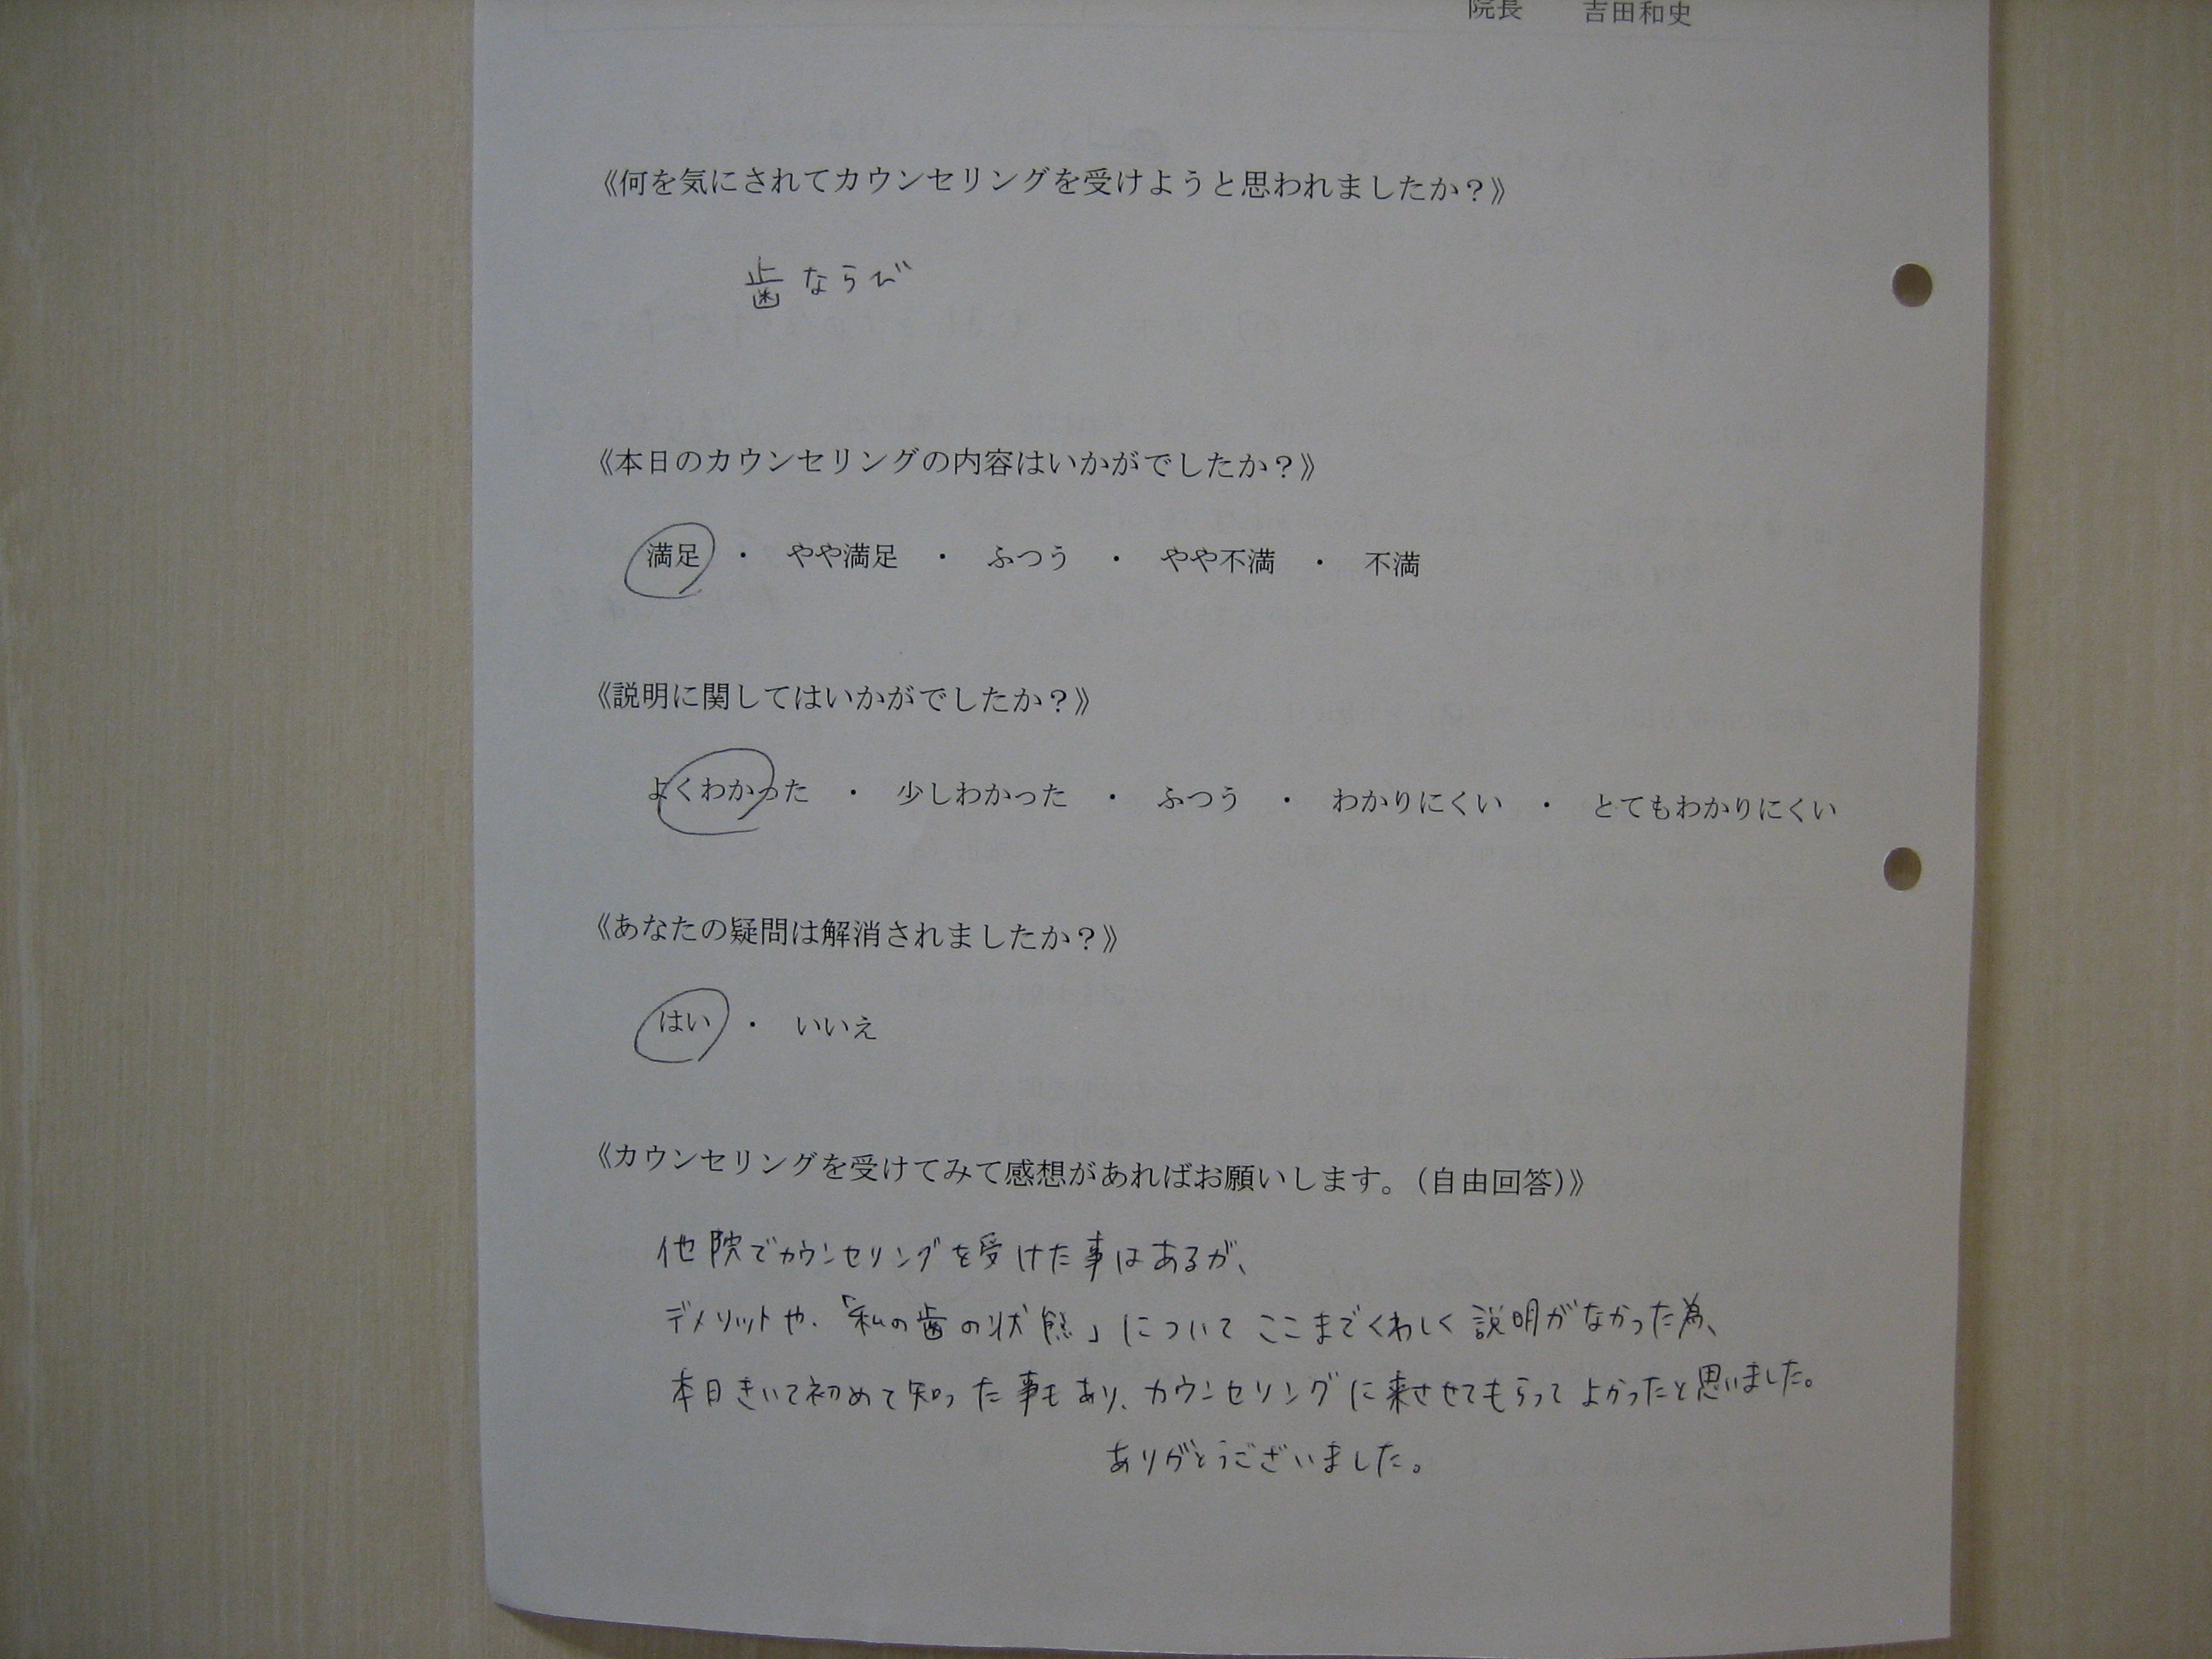 院長　吉田和史
《何を気にされてカウンセリングを受けようと思われましたか？》
歯ならび
《本日のカウンセリングの内容はいかがでしたか？》
満足　・　やや満足　・　ふつう　・　やや不満　・　不満
《説明に関してはいかがでしたか？》
よくわかった　・　少しわかった　・　ふつう　・　わかりにくい　・　とてもわかりにくい
《あなたの疑問は解消されましたか？》
はい　・　いいえ
《カウンセリングを受けてみて感想があればお願いします。（自由回答）》
他院でカウンセリングを受けた事はあるが、
デメリットや、「私の歯の状態」についてここまでくわしく説明がなかった為、
本日きいて初めて知った事もあり、カウンセリングに来させてもらってよかったと思いました。
ありがとうございました。